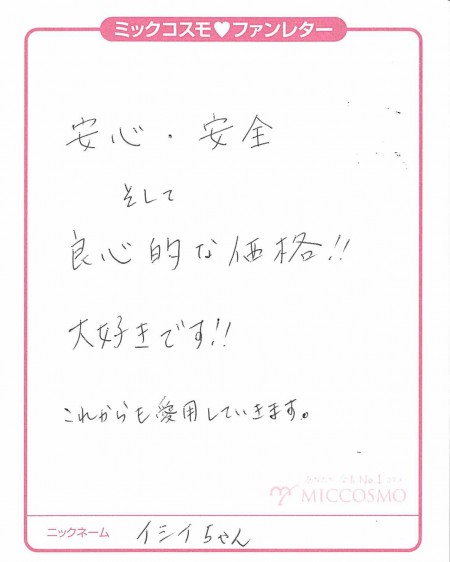 ミックコスモ♥ファンレター
安心・安全
そして
良心的な価格!!
大好きです!!
これからも愛用していきます。
MICCOSMO
ニックネーム イシイちゃん